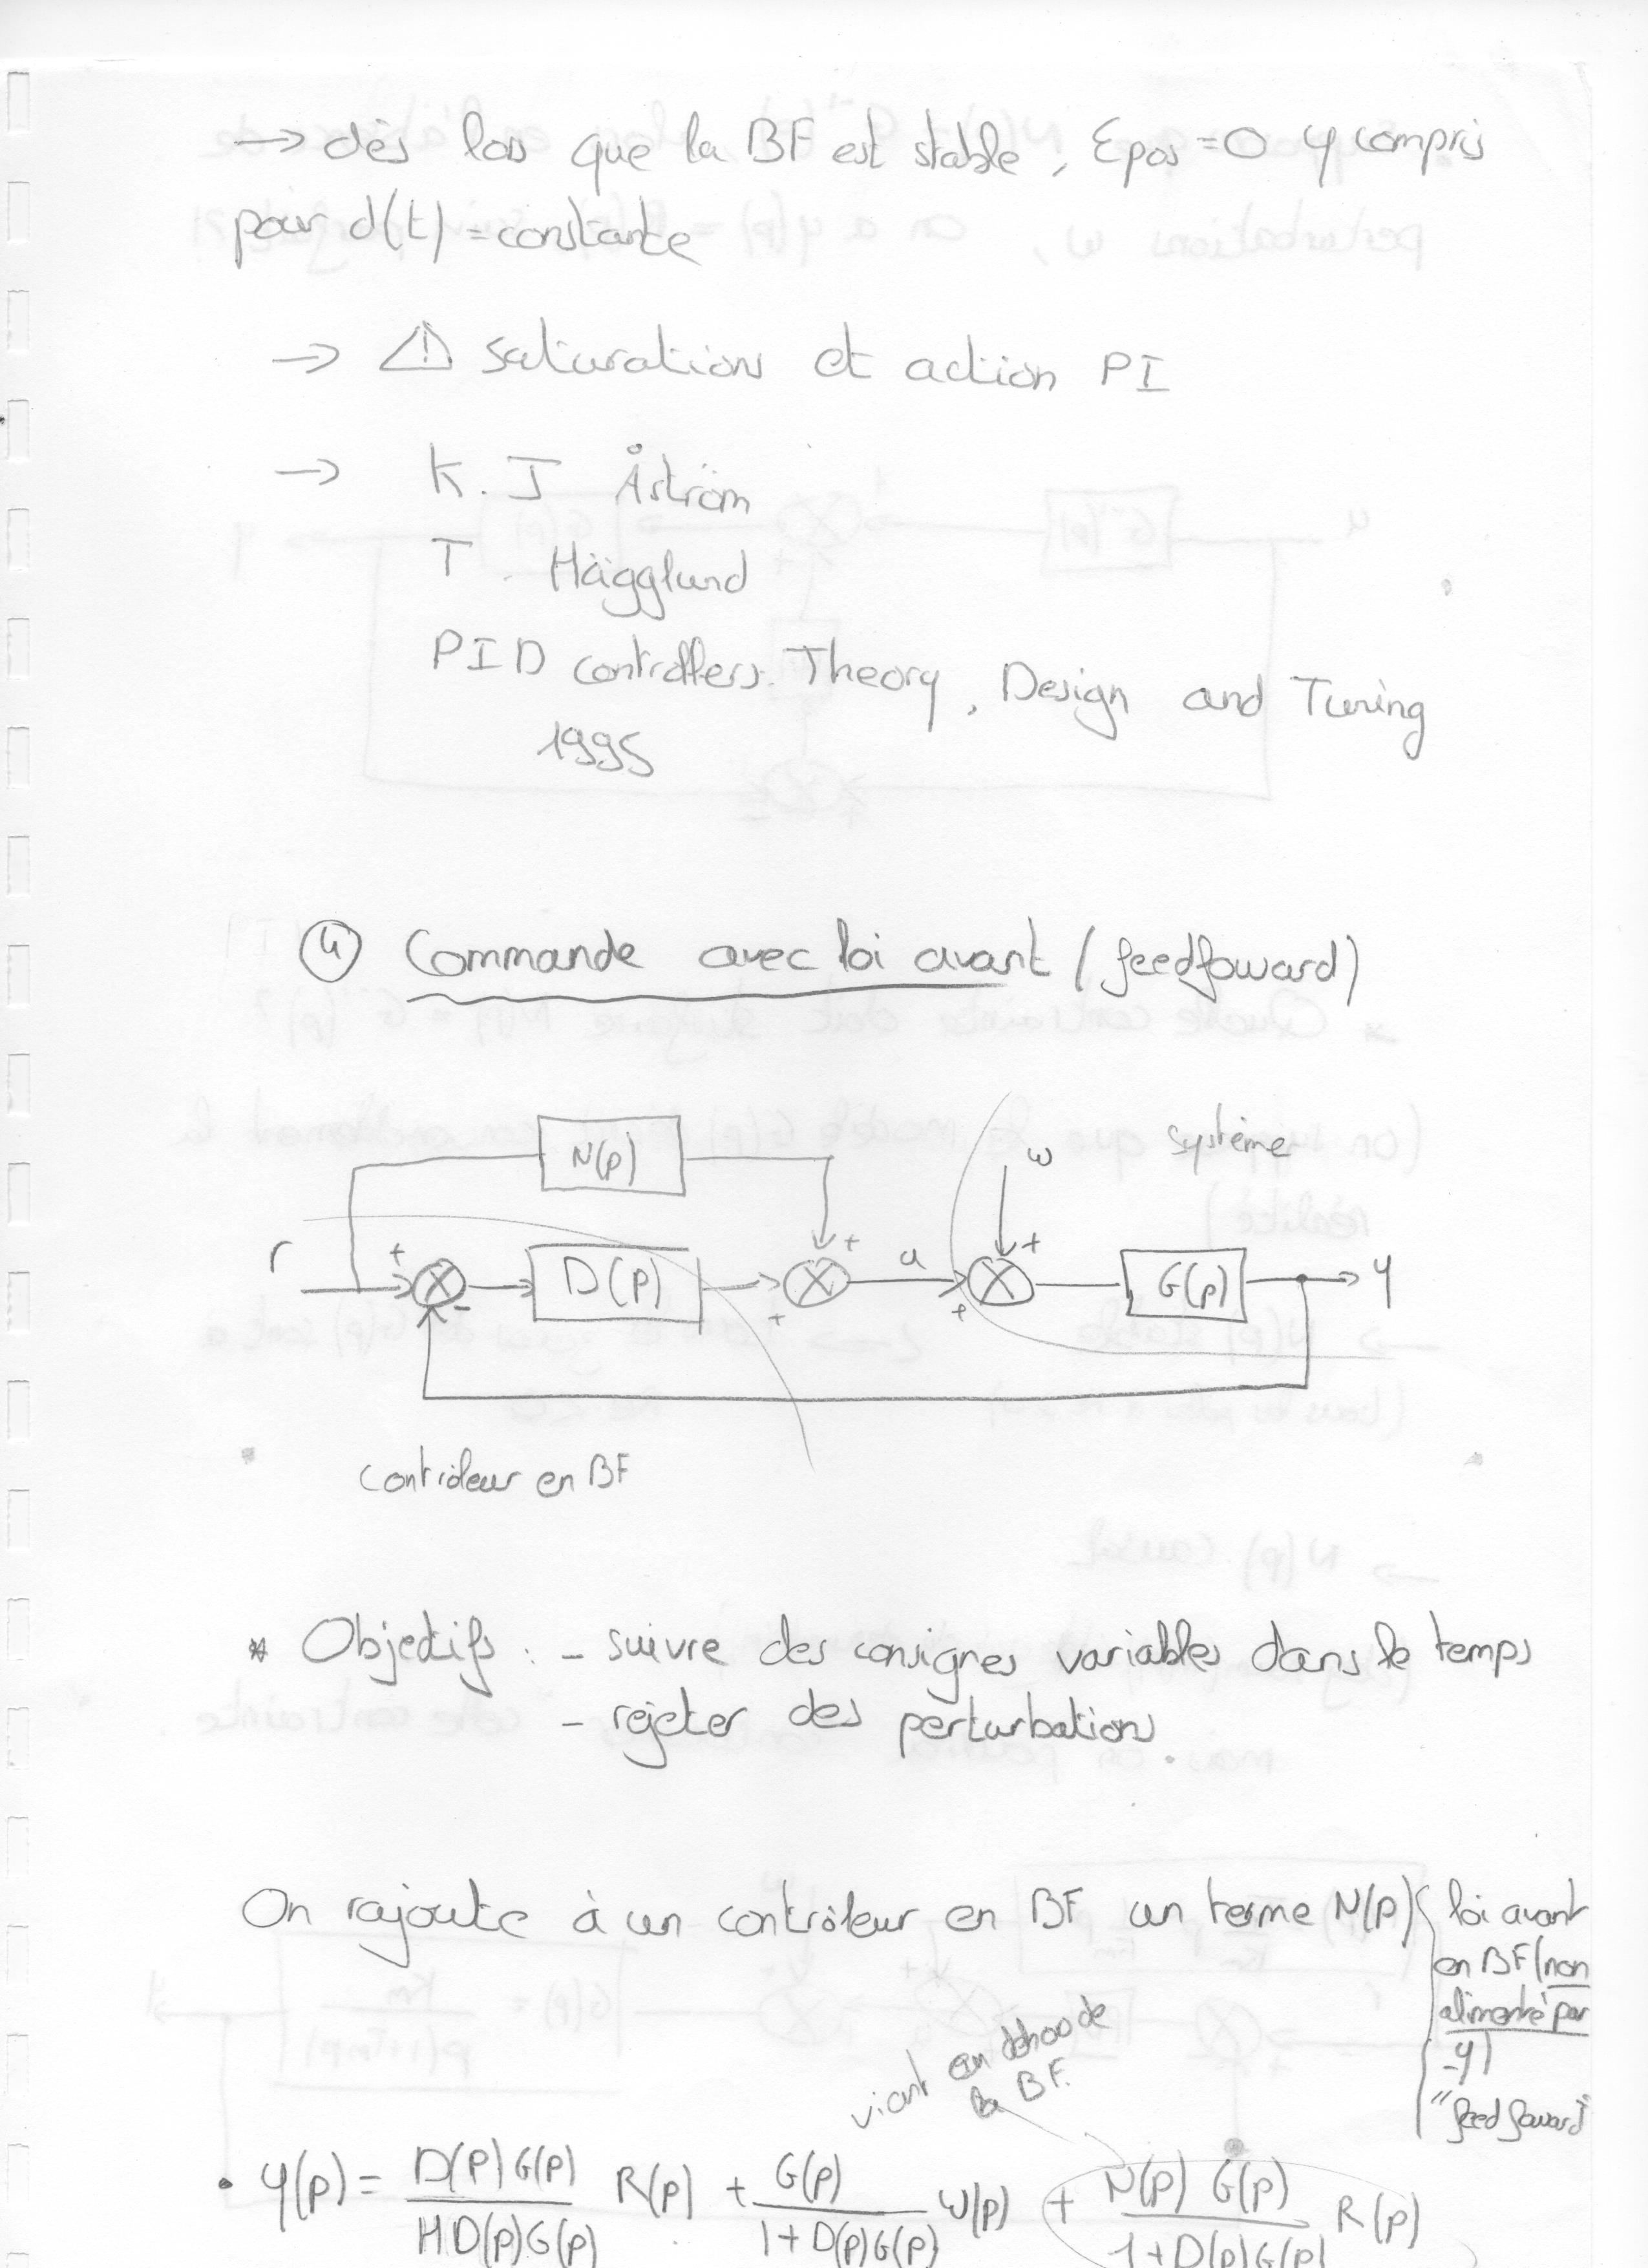 → dès lors que la BF est stable, Epos = 0 y compris
pour d(t) = constante
→ ⚠ saturations et action PI
→ K. J Åström
T. Hägglund
PID controllers. Theory, Design and Tuning
1995
④ Commande avec loi avant (feedfoward)
N(p)
système
w
r + - D(p) + + u + + G(p) y
contrôleur en BF
* Objectifs : - suivre des consignes variables dans le temps
- rejeter des perturbations
On rajoute à un contrôleur en BF un terme N(p) { loi avant
en BF (non
alimenté par
-y)
"feed foward"
vient en dehors de
la BF.
• Y(p) = D(p)G(p) / 1+D(p)G(p) R(p) + G(p) / 1+D(p)G(p) W(p) + N(p) G(p) / 1+D(p)G(p) R(p)